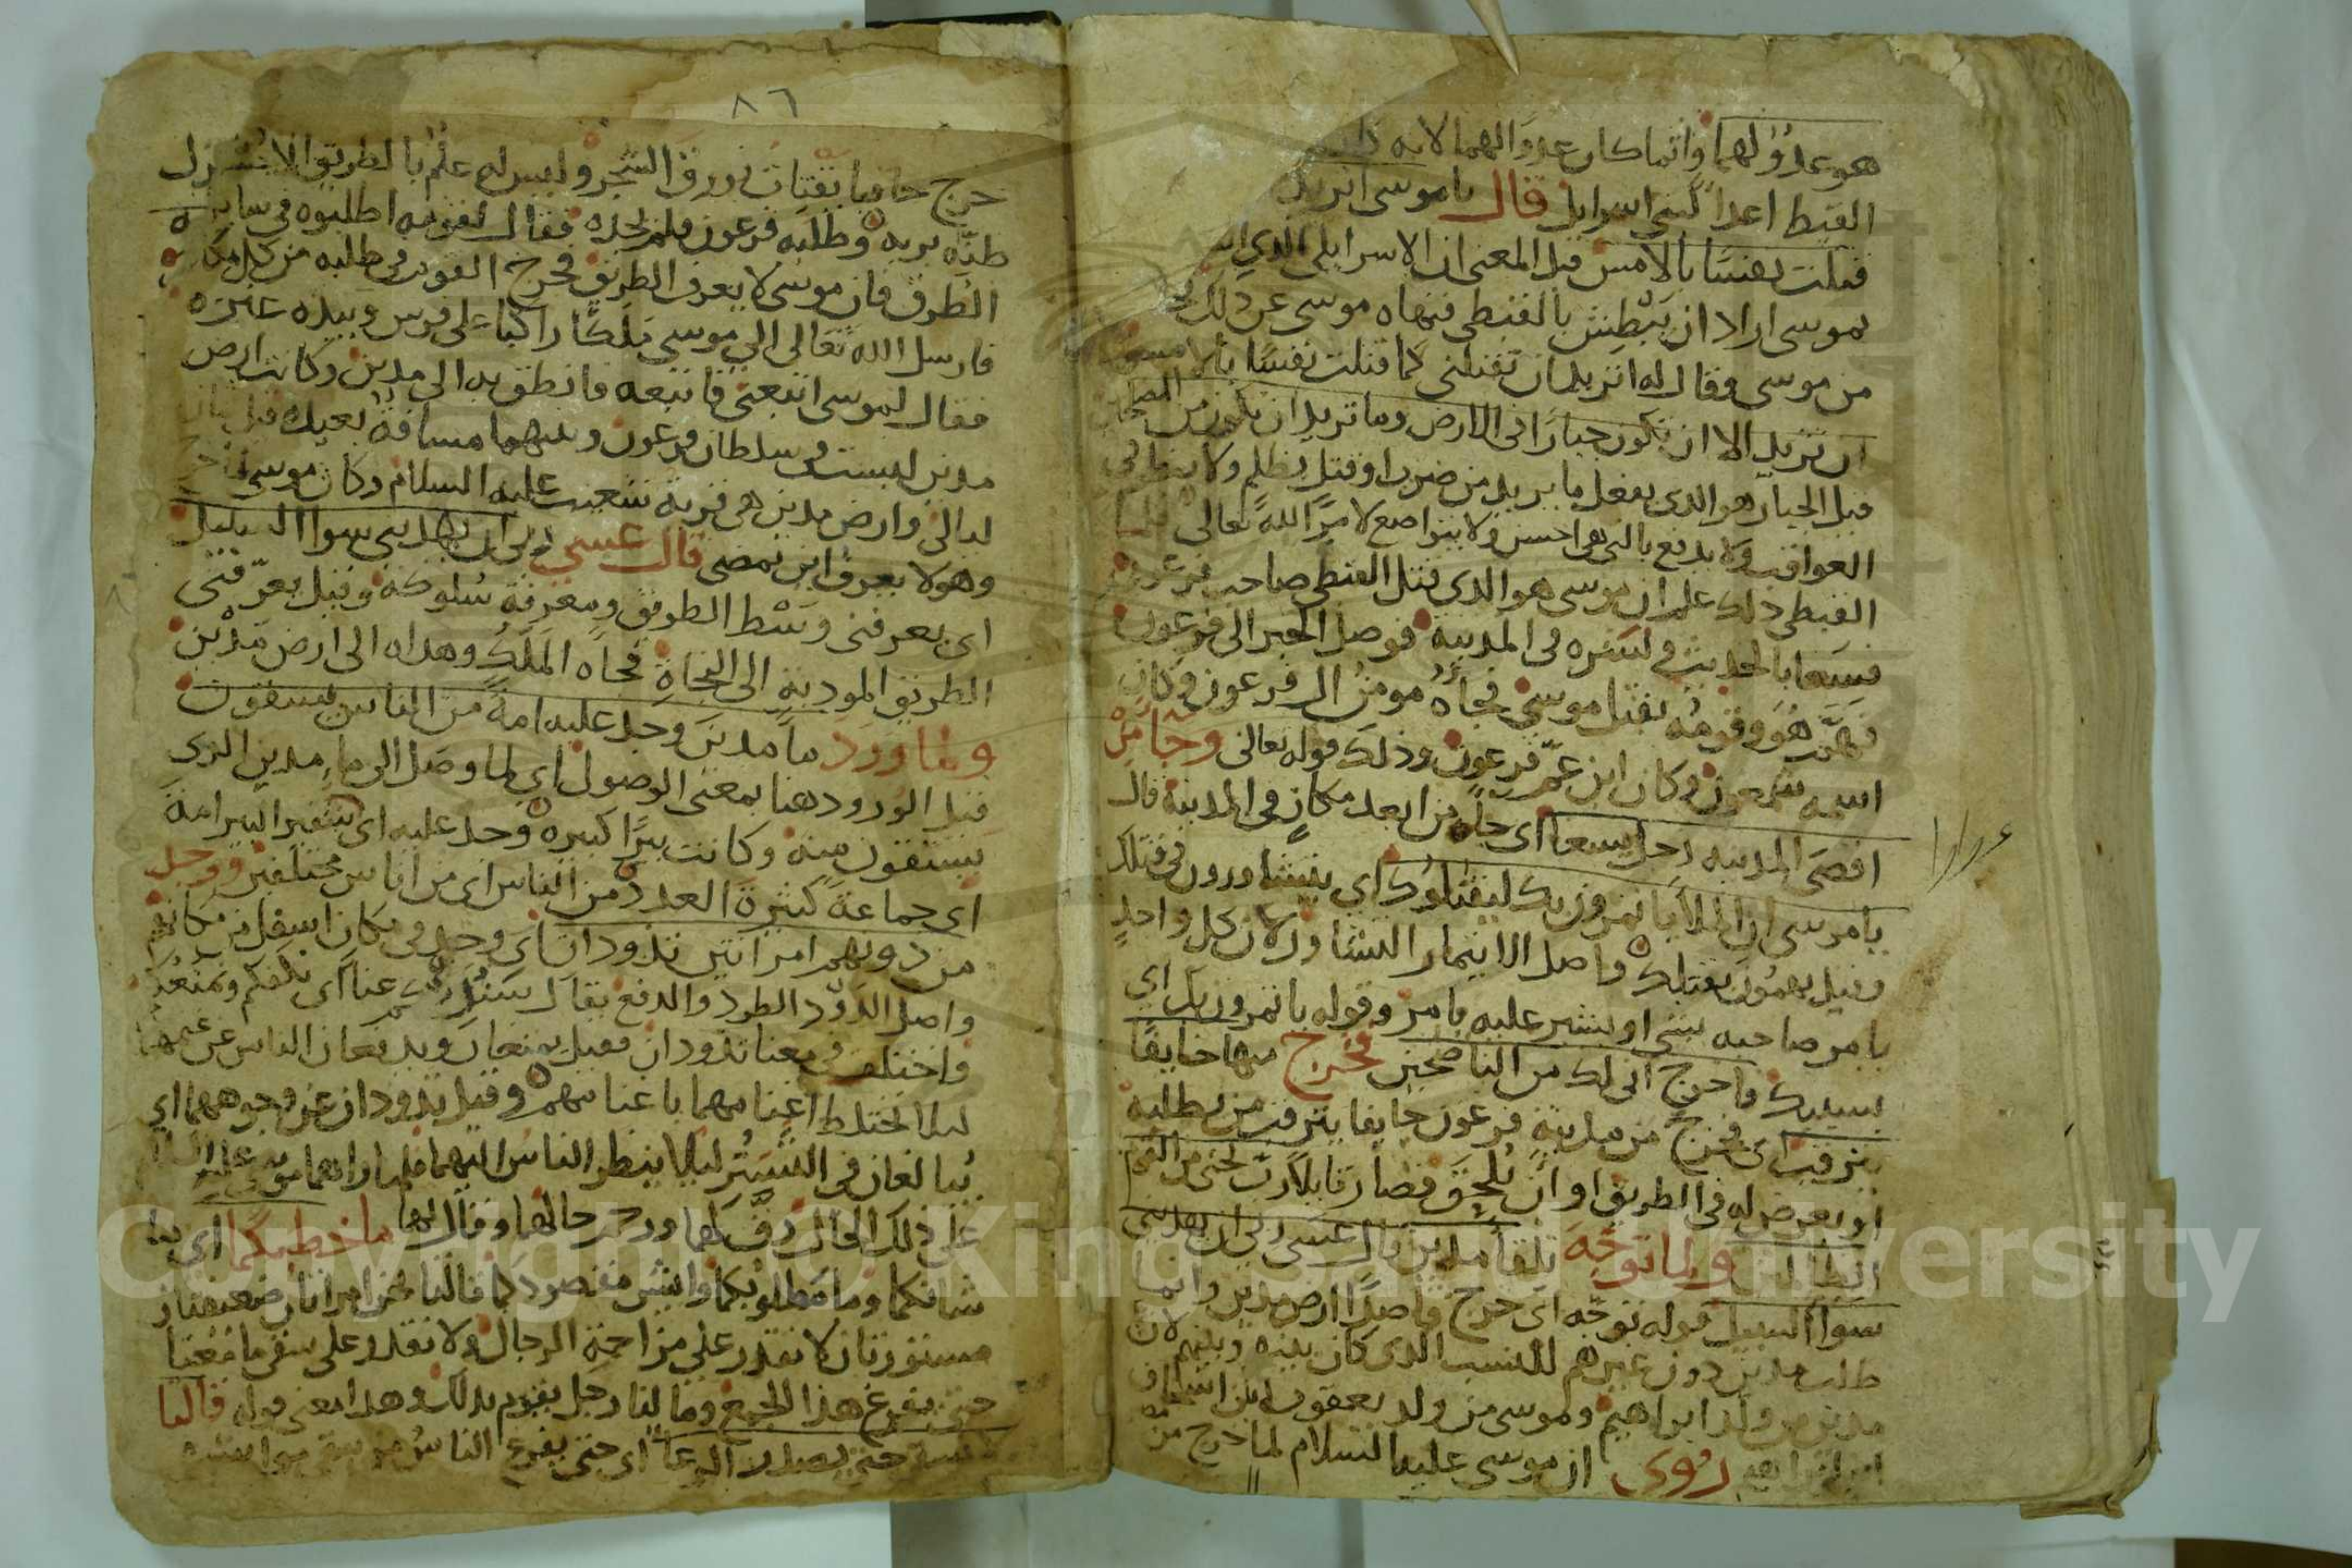 هو عدوٌ لهما وانما كان عدوا لهما لانه
القبط اعدا لبني اسرايل قال يا موسى اتريد
قتلت نفسًا بالامس قيل المعنى ان الاسرايلي الذي
بموسى اراد ان يبطش بالقبطي فنهاه موسى عن ذلك
من موسى وقال له اتريد ان تقتلني كما قتلت نفسًا بالامس
ان تريد الا ان تكون جبارًا في الارض وما تريد ان تكون من المصلحين
قيل الجبار هو الذي يفعل ما يريد من ضرب او قتل بظلم ولا ينظر في
العواقب ولا يدفع بالتي هي احسن ولا يتواضع لامر الله تعالى فلما
القبطي ذلك علم ان موسى هو الذي قتل القبطي صاحب فرعون
فسعا بالحديث في المدينة فوصل الخبر الى فرعون
فهمَّ هُوَ وقومُه بقتل موسى فجاه مومن ال فرعون وكان
اسمه شمعون وكان ابن عمّ فرعون وذلك قوله تعالى وجا من
اقصى المدينه رجل يسعا اي جا من ابعد مكان في المدينة قال
يا موسى ان الملأ يا تمرون بك ليقتلوك اي يتشاورون في قتلك
وقيل يهمون بقتلك واصل الايتمار التشاور لان كل واحدٍ
يامر صاحبه بشي او يشير عليه بامر وقوله ياتمرون بك اي
بسببك فاخرج اني لك من الناصحين فخرج منها خايفًا
يترقب اي فخرج من مدينة فرعون خايفا يترقب من يطلبه
او يعرض له في الطريق او ان يُلحقَ فصار قايلا رب نجني من القوم
الظالمين ولما توجّه تلقا مدين قال عسى ربي ان يهديني
سوا السبيل قوله توجّه اي خرج قاصدًا ارض مدين وانما
طلب مدين دون غيرهم للنسب الذي كان بينه وبينهم لان
مدين من ولد ابراهيم وموسى من ولد يعقوب بن اسحاق
ابن ابراهيم رُوي ان موسى عليه السلام لما خرج من
٨٦
خرج حافيا يقتات ورق الشجر وليس له علمٌ بالطريق الا حُسن
ظنّه بربه وطلبه فرعون فلم يجده فقال لقومه اطلبوه في ساير
الطرق فان موسى لا يعرف الطريق فخرج القوم في طلبه من كل مكان
فارسل الله تعالى الى موسى مَلكًا راكبا على فرس وبيده عنزه
فقال لموسى اتبعني فاتبعه فانطلق به الى مدين وكانت ارض
مدين ليست في سلطان فرعون وبينهما مسافة بعيدة قيل ثمان
ليالي وارض مدين هي قرية شعيب عليه السلام وكان موسى
وهو لا يعرف اين يمضى قال عسى ربي ان يهديني سوا السبيل
اي يعرفني وَسْط الطريق ومعرفة سُلوكه وقيل يعرّفني
الطريق المودية الى النجاة فجاه المَلَك وهداه الى ارض مَدْين
ولما ورد ما مدين وجد عليه امةً من الناس يسقون
قيل الورود هنا بمعنى الوصول اي لما وصل الى ماء مدين الذي
يستقون منه وكانت بيرًا كبيره وجد عليه اي شفير البير امة
اي جماعة كثيرة العدد من الناس اي من اناس مختلفين ووجد
من دونهم امراتين تذودان اي وجد في مكان اسفل من مكانهم
واصل الذود الطرد والدفع يقال عنا اي نكفكم ونمنعكم
واختلف في معنا تذودان فقيل يمنعان ويدفعان الناس عن غنمهما
ليلا تختلط اغنامهما باغنامهم وقيل تذودان عن وجوههما اي
يُبالغان في التستر ليلا ينظر الناس اليهما فلما راهما موسى عليه السلام
على ذلك الحال رقَّ لهما ورحم حالهما وقال لهما ما خطبكما اي ما
شانكما وما مطلوبكما وايش مقصودكما قالتا نحن امراتان ضعيفتان
مستورتان لا نقدر على مزاحمة الرجال ولا نقدر على سقي ما معنا
حتى يفرغ هذا الجمع وما لنا رجل يقوم بذلك وهذا معنى قوله قالتا
لا نسقي حتى يصدر الرعا اي حتى يفرغ الناس من سقي مواشيهم
Copyright © King Saud University